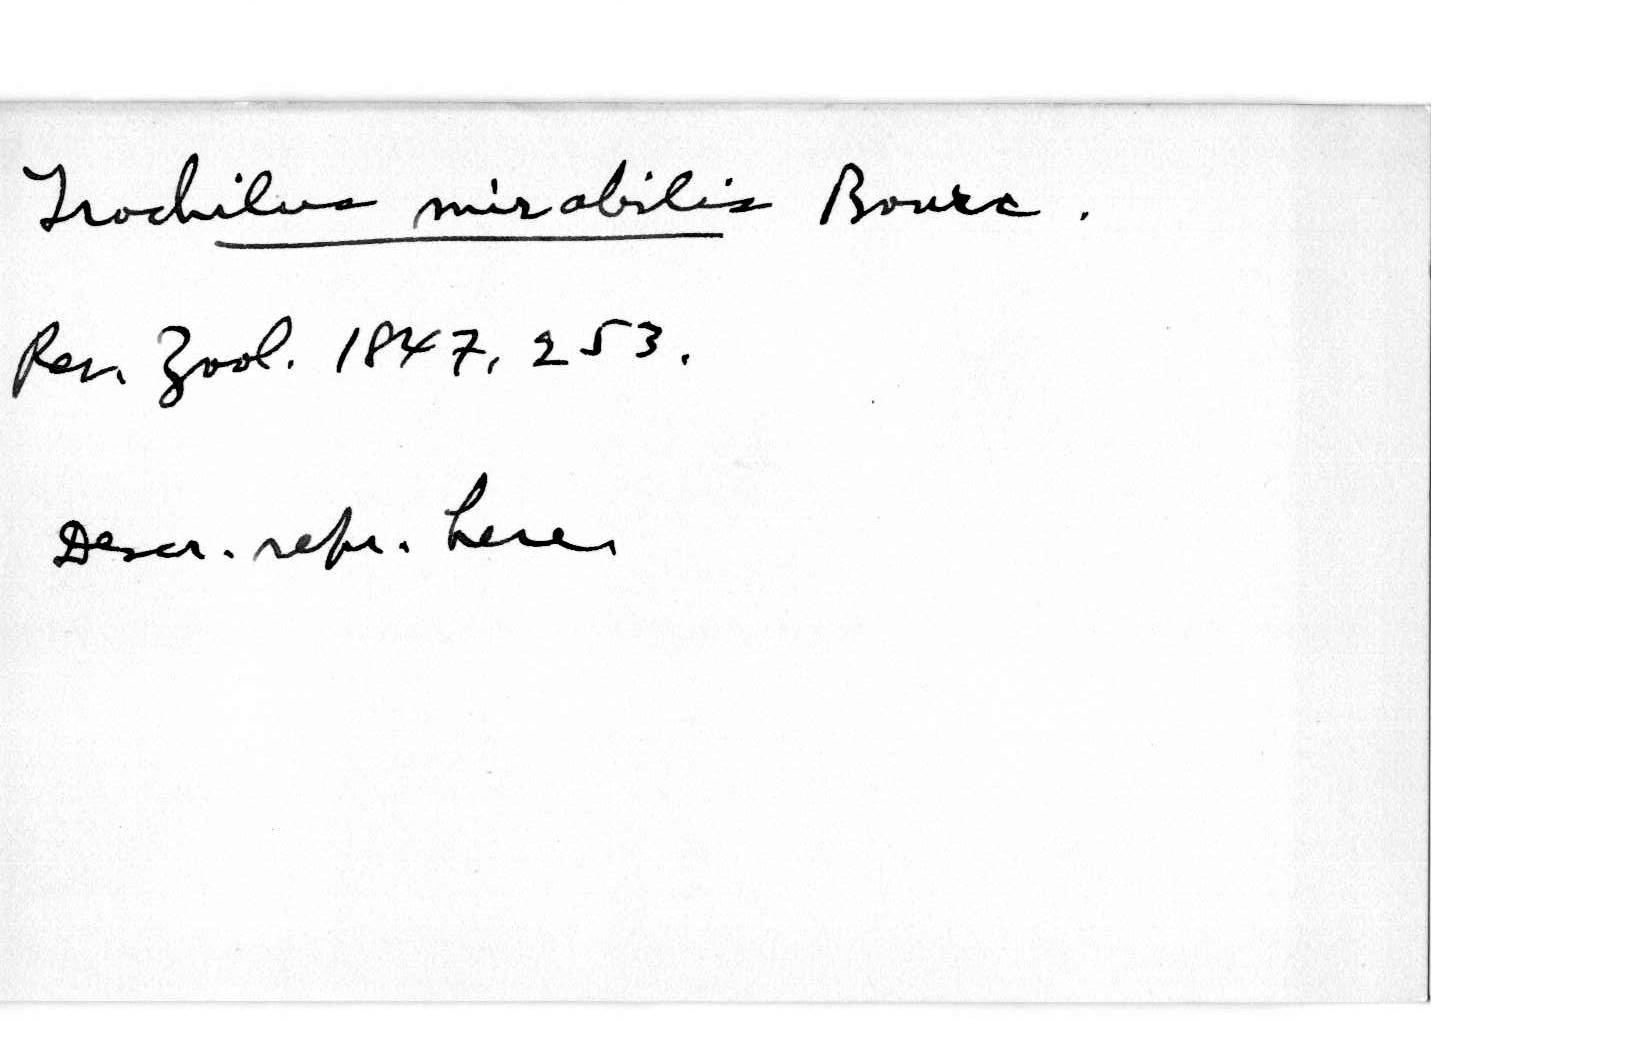 Trochilus mirabilis Bourc.
Rev. Zool. 1847, 253.
Descr. repr. here.